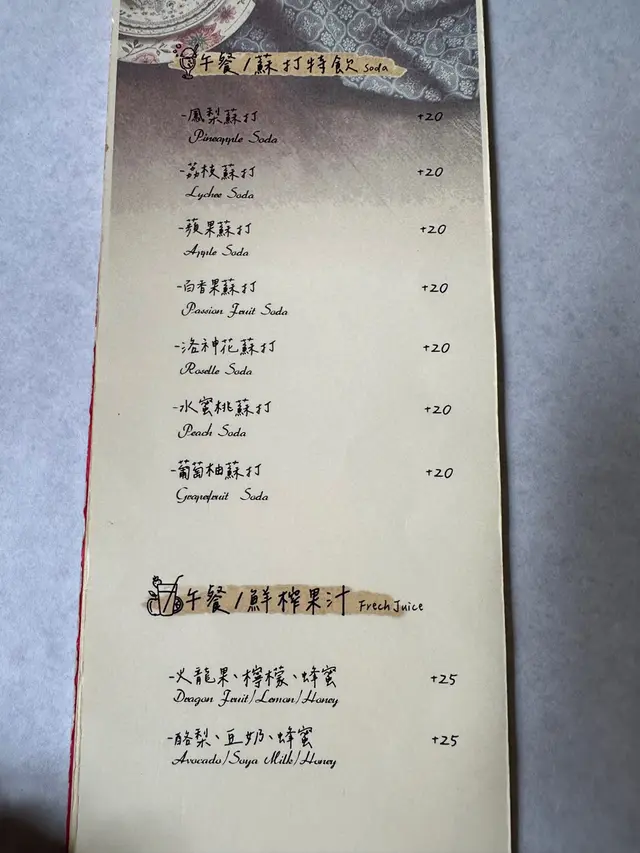 午餐/蘇打特飲 Soda
-鳳梨蘇打 +20
Pineapple Soda
-荔枝蘇打 +20
Lychee Soda
-蘋果蘇打 +20
Apple Soda
-百香果蘇打 +20
Passion Fruit Soda
-洛神花蘇打 +20
Roselle Soda
-水蜜桃蘇打 +20
Peach Soda
-葡萄柚蘇打 +20
Grapefruit Soda
午餐/鮮榨果汁 Frech Juice
-火龍果、檸檬、蜂蜜 +25
Dragon Fruit/Lemon/Honey
-酪梨、豆奶、蜂蜜 +25
Avocado/Soya Milk/Honey